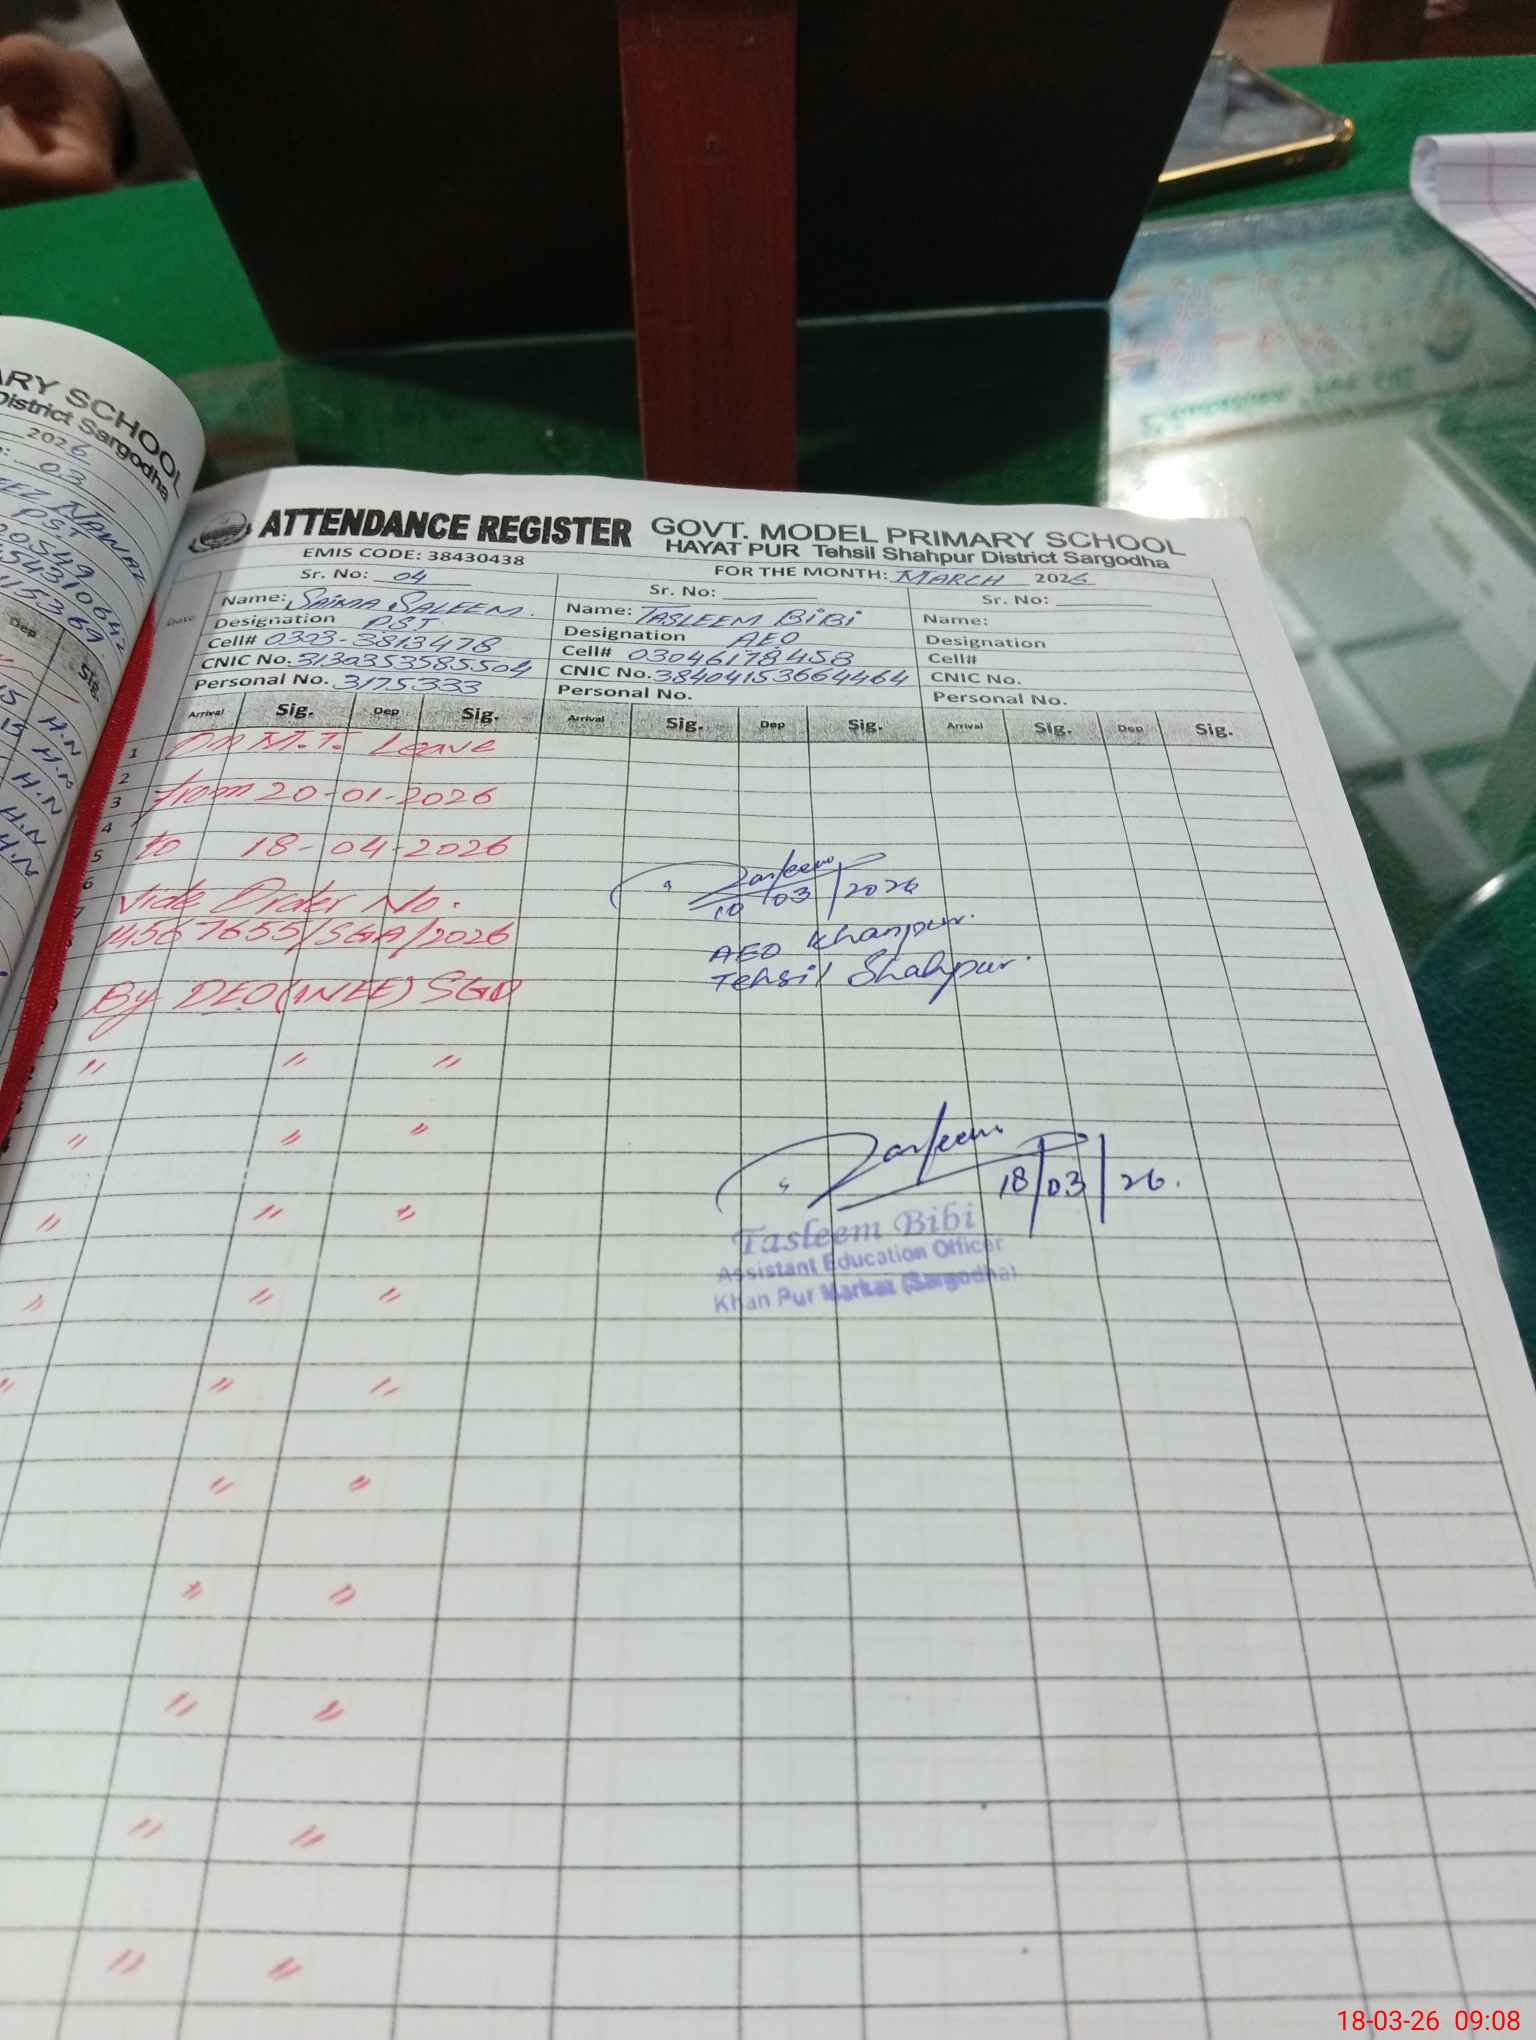 ARY SCHOOL
District Sargodha
2026
03
EEZ NAWAZ
PST
Dep
Sig.
15 H.N
15 H.N
H.N
H.N
H.N
ATTENDANCE REGISTER GOVT. MODEL PRIMARY SCHOOL
HAYAT PUR Tehsil Shahpur District Sargodha
EMIS CODE: 38430438
FOR THE MONTH: MARCH 2026
Date
Sr. No: 04
Name: SAIMA SALEEM.
Designation PST
Cell# 0303-3813478
CNIC No. 3130353585504
Personal No. 3175333
Sr. No:
Name: TASLEEM BIBI
Designation AEO
Cell# 03046178458
CNIC No. 38404153664464
Personal No.
Sr. No:
Name:
Designation
Cell#
CNIC No.
Personal No.
Arrival Sig. Dep Sig. Arrival Sig. Dep Sig. Arrival Sig. Dep Sig.
1 On M.T. Leave
2
3 from 20-01-2026
4
5 to 18-04-2026
6
7 Vide Order No.
14567655/SGA/2026
By DEO(W-EE) SGD
" " "
" " "
" " "
" " "
" " "
" "
" "
" "
" "
" "
Tasleem
10/03/2026
AEO Khanpur.
Tehsil Shahpur.
Tasleem
18/03/26.
Tasleem Bibi
Assistant Education Officer
Khan Pur Markaz (Sargodha)
18-03-26 09:08